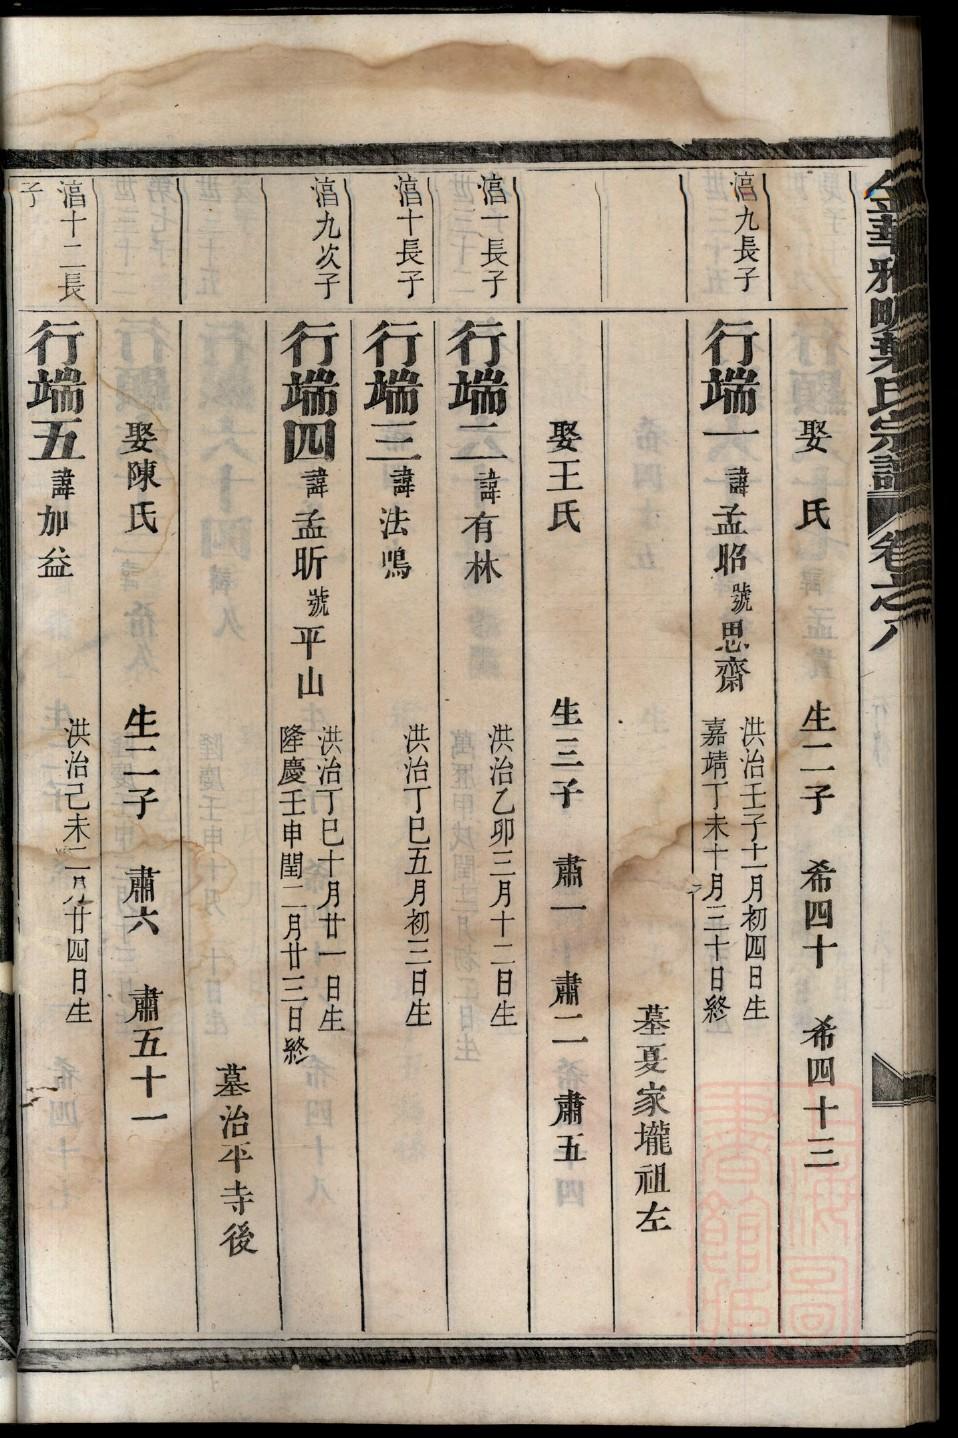 金華雅畈葉氏宗譜 卷之八
娶 氏 生二子 希四十 希四十三
滀九長子
行端一 諱孟昭 號思齋 洪治壬子十一月初四日生
嘉靖丁未十月三十日終
墓夏家壠祖左
娶王氏 生三子 肅一 肅二 肅五
滀一長子
行端二 諱有林 洪治乙卯三月十二日生
滀十長子
行端三 諱法鳴 洪治丁巳五月初三日生
滀九次子
行端四 諱孟昕 號平山 洪治丁巳十月廿一日生
隆慶壬申閏二月廿三日終
墓治平寺後
娶陳氏 生二子 肅六 肅五十一
滀十二長
子
行端五 諱加益 洪治己未二月廿四日生